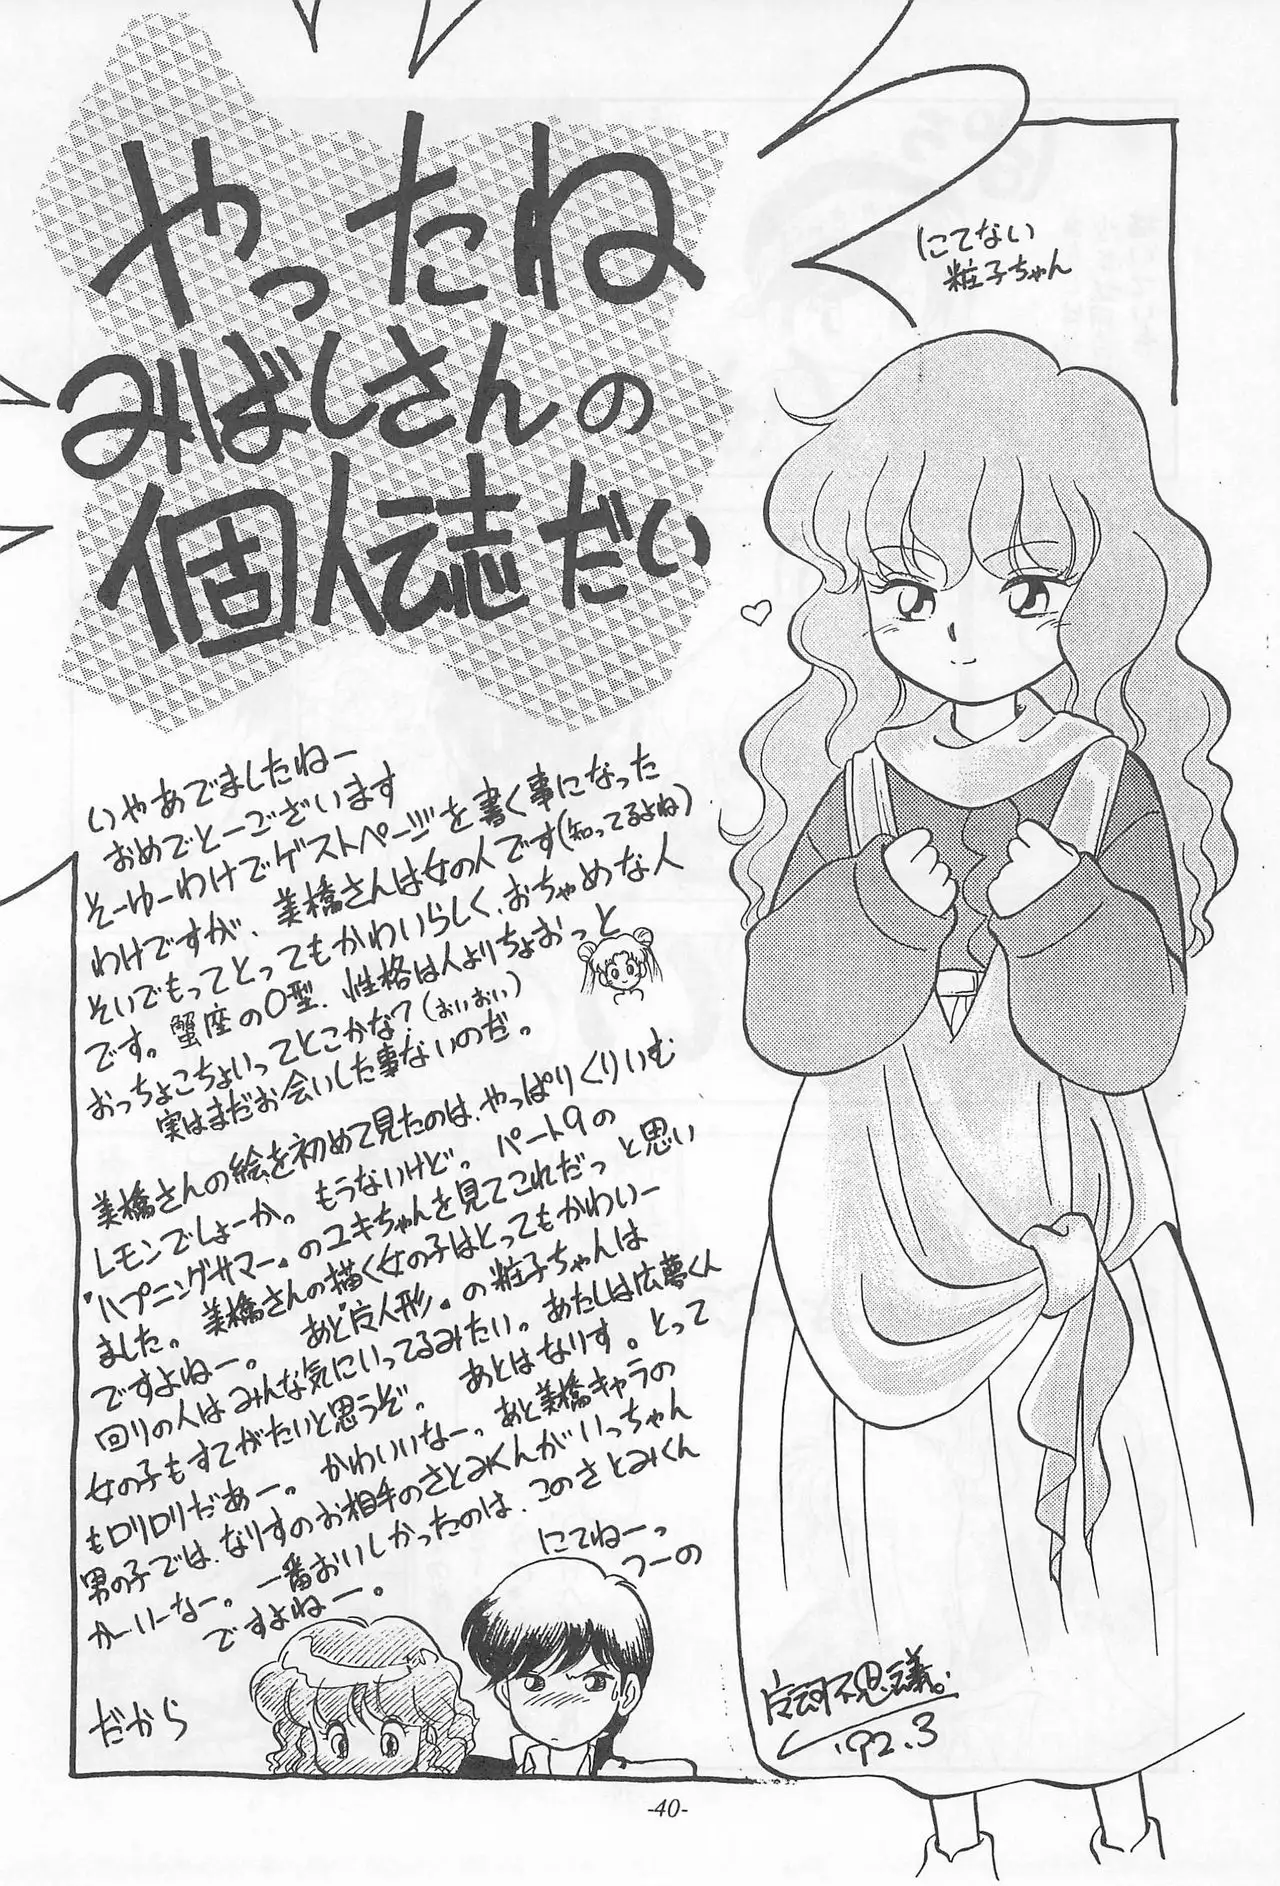 やったね
みばしさんの
個人誌だい
にてない
粧子ちゃん
いやあでましたねー
おめでとーございます
そーゆーわけでゲストページを書く事になった
わけですが、美橋さんは女の人です(知ってるよね)
そいでもってとってもかわいらしく、おちゃめな人
です。蟹座のO型、性格は人よりちょおっと
おっちょこちょいってとこかな?(おいおい)
実はまだお会いした事ないのだ。
美橋さんの絵を初めて見たのは、やっぱりくりいむ
レモンでしょーか。もうないけど。パート9の
『ハプニングサマー』のユキちゃんを見てこれだっと思い
ました。美橋さんの描く女の子はとってもかわいー
ですよねー。あと『人形』の粧子ちゃんは
回りの人はみんな気にいってるみたい。あたしは広夢くん
女の子もすてがたいと思うぞ。あとはなりす。とって
もロリロリだあー。かわいいなー。あと美橋キャラの
男の子では、なりすのお相手のさとみくんがいっちゃん
かーいーなー。一番おいしかったのは、このさとみくん
ですよねー。
にてねーっ
つーの
だから
不思議。
'92.3
-40-